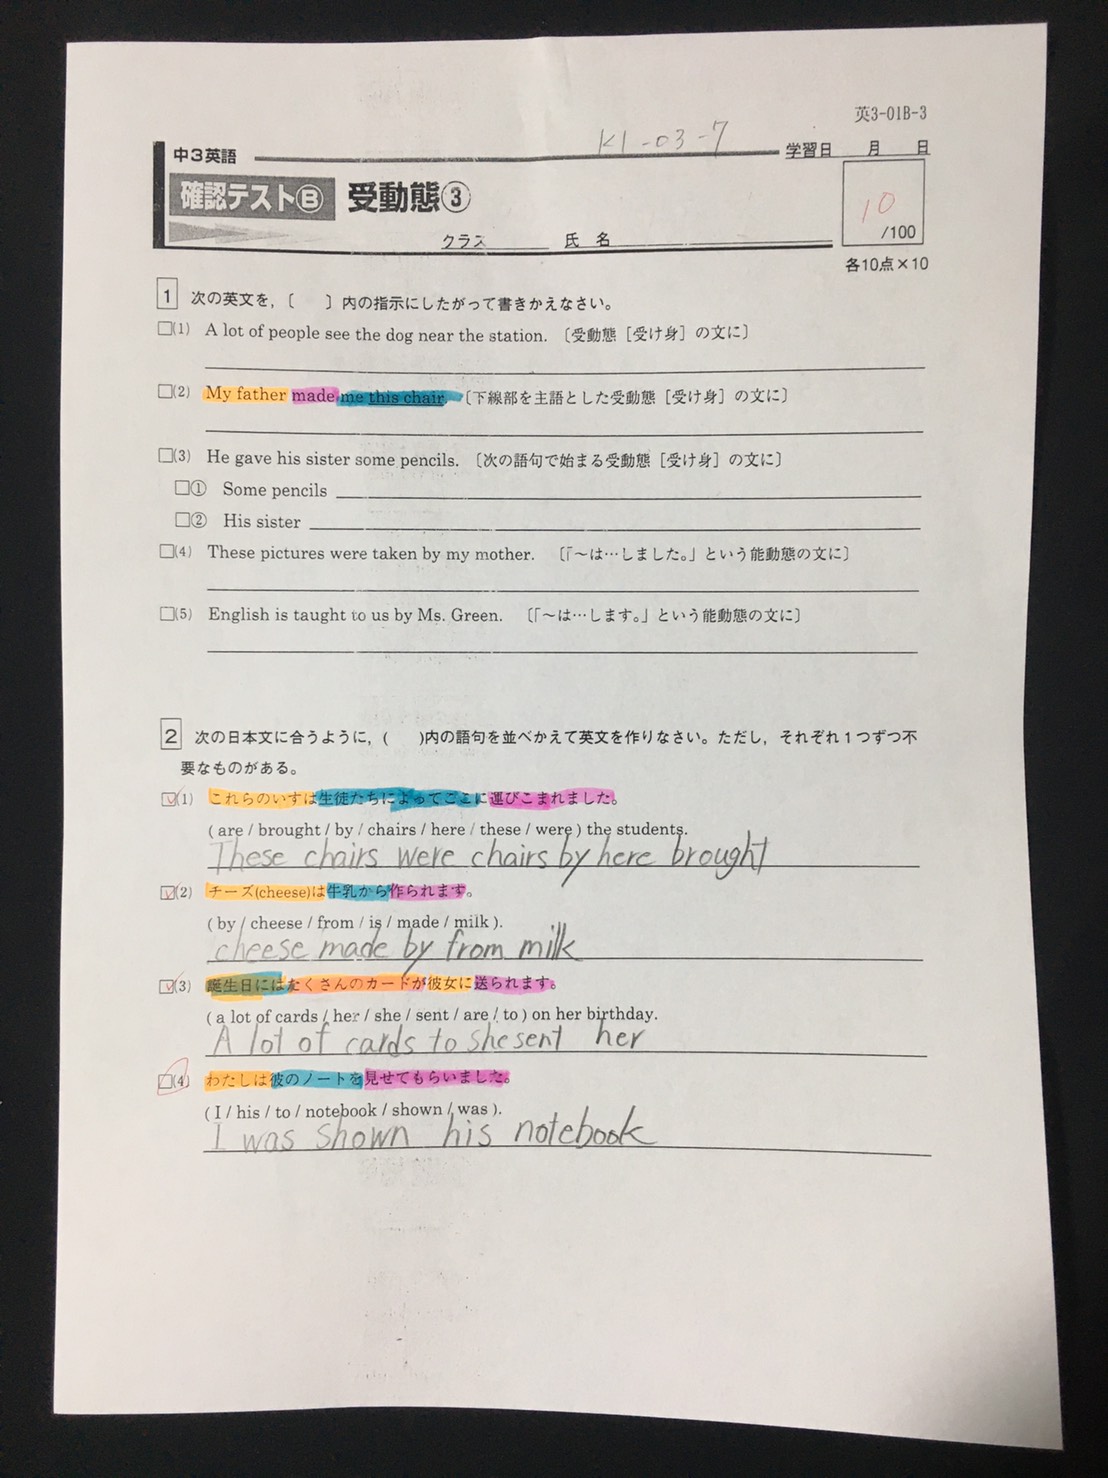 英3-01B-3
K1-03-7
中3英語 学習日 月 日
確認テストⒷ 受動態③
10
/100
クラス 氏名
各10点×10
1 次の英文を,〔 〕内の指示にしたがって書きかえなさい。
□(1) A lot of people see the dog near the station. 〔受動態[受け身]の文に〕
□(2) My father made me this chair. 〔下線部を主語とした受動態[受け身]の文に〕
□(3) He gave his sister some pencils. 〔次の語句で始まる受動態[受け身]の文に〕
□① Some pencils
□② His sister
□(4) These pictures were taken by my mother. 〔「～は…しました。」という能動態の文に〕
□(5) English is taught to us by Ms. Green. 〔「～は…します。」という能動態の文に〕
2 次の日本文に合うように,( )内の語句を並べかえて英文を作りなさい。ただし,それぞれ1つずつ不
要なものがある。
□(1) これらのいすは生徒たちによってここに運びこまれました。
( are / brought / by / chairs / here / these / were ) the students.
These chairs were chairs by here brought
□(2) チーズ(cheese)は牛乳から作られます。
( by / cheese / from / is / made / milk ).
cheese made by from milk
□(3) 誕生日にはたくさんのカードが彼女に送られます。
( a lot of cards / her / she / sent / are / to ) on her birthday.
A lot of cards to she sent her
□(4) わたしは彼のノートを見せてもらいました。
( I / his / to / notebook / shown / was ).
I was shown his notebook